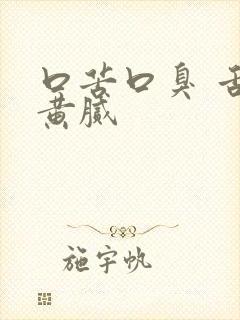 口苦口臭 舌
黄腻
施宇帆